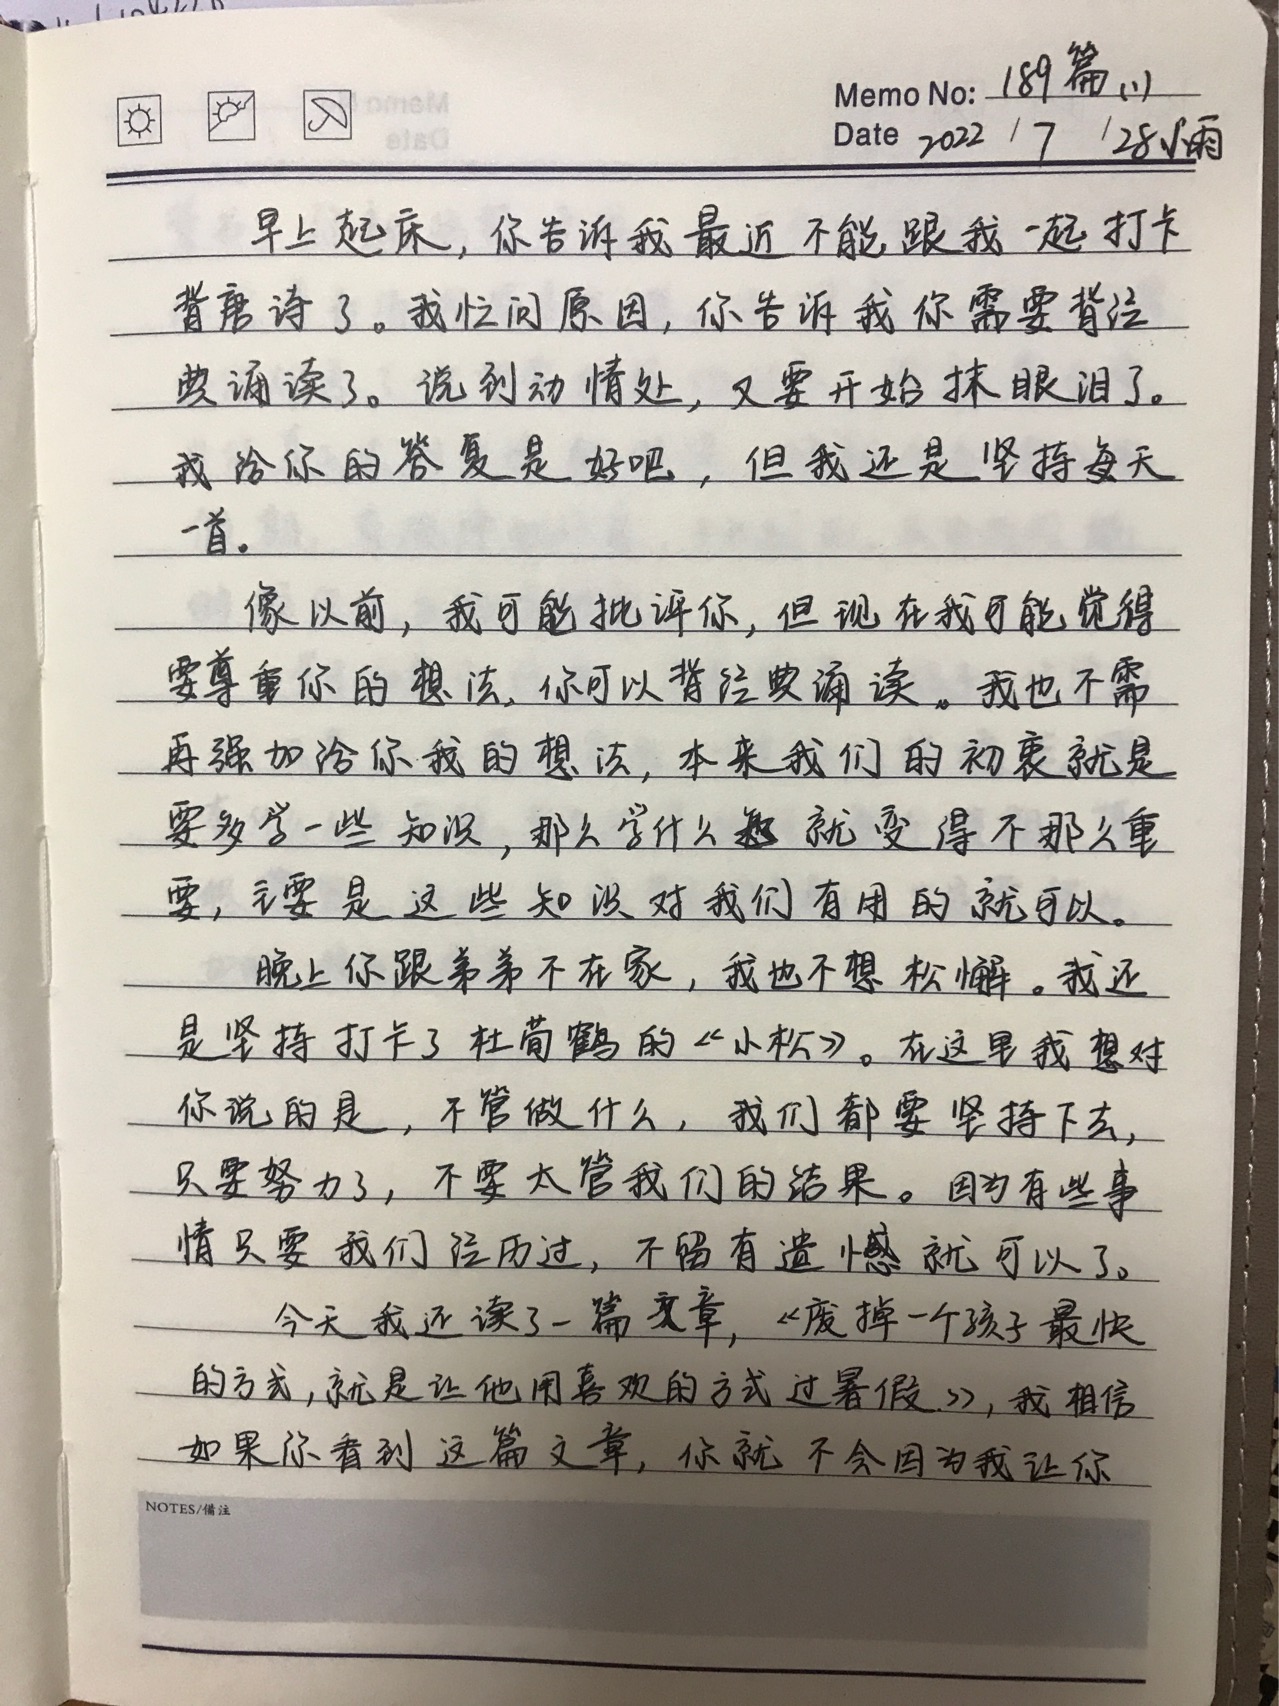 Memo No: 189篇(1)
Date 2022/7/28小雨
早上起床,你告诉我最近不能跟我一起打卡
背唐诗了。我忙问原因,你告诉我你需要背经
典诵读了。说到动情处,又要开始抹眼泪了。
我给你的答复是好吧,但我还是坚持每天
一首。
像以前,我可能批评你,但现在我可能觉得
要尊重你的想法,你可以背经典诵读。我也不需
再强加给你我的想法,本来我们的初衷就是
要多学一些知识,那么学什么就变得不那么重
要,主要是这些知识对我们有用的就可以。
晚上你跟弟弟不在家,我也不想松懈。我还
是坚持打卡了杜荀鹤的《小松》。在这里我想对
你说的是,不管做什么,我们都要坚持下去,
只要努力了,不要太管我们的结果。因为有些事
情只要我们经历过,不留有遗憾就可以了。
今天我还读了一篇文章,《废掉一个孩子最快
的方式,就是让他用喜欢的方式过暑假》,我相信
如果你看到这篇文章,你就不会因为我让你
NOTES/備注